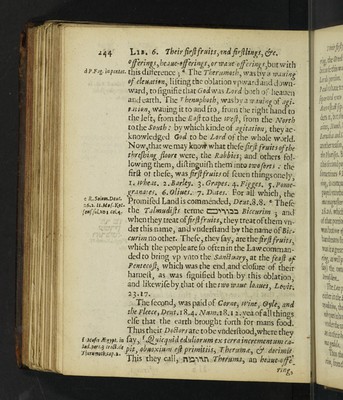 244 LIB. 6. Their first fruits, and firstlings, &c.
offerings, heaue-offerings, or waue offerings, but with
d P. Fag. in pentat.
this difference; d The Therumoth, was by a wauing
of eleuation, lifting the oblation vpward and down-
ward, to signifie that God was Lord both of heauen
and earth. The Thenuphoth, was by a wauing of agi-
tation, wauing it to and fro, from the right hand to
the left, from the East to the West, from the North
to the South: by which kinde of agitation, they ac-
knowledged God to be Lord of the whole world.
Now, that we may know what these first fruits of the
threshing floore were, the Rabbies, and others fol-
lowing them, distinguish them into two sorts: the
first of these, was first fruits of seuen things onely,
1. Wheat. 2. Barley. 3. Grapes. 4. Figges. 5. Pome-
granates. 6. Oliues. 7. Dates. For all which, the
Promised Land is commended, Deut. 8.8. e These
e R. Solom. Deut.
26.2. It. Mos. Kot-
the Talmudists terme בכורים Biccurim; and
when they treat of first fruits, they treat of them vn-
der this name, and vnderstand by the name of Bic-
curim no other. These, they say, are the first fruits,
which the people are so often in the Law comman-
ded to bring vp vnto the Sanctuary, at the feast of
Pentecost, which was the end and closure of their
haruest, as was signified both by this oblation,
and likewise by that of the two waue loaues, Levit.
23.17.
The second, was paid of Corne, Wine, Oyle, and
the Fleece, Deut. 18.4. Num. 18.12. yea of all things
else that the earth brought forth for mans food.
Thus their Doctors are to be vnderstood, where they
say, f Quicquid eduliorum ex terra incrementum ca-
pit, obnoxium est primitiis, Therumæ, & decimis.
This they call, תרומה Theruma, an heaue-offe-
ring,